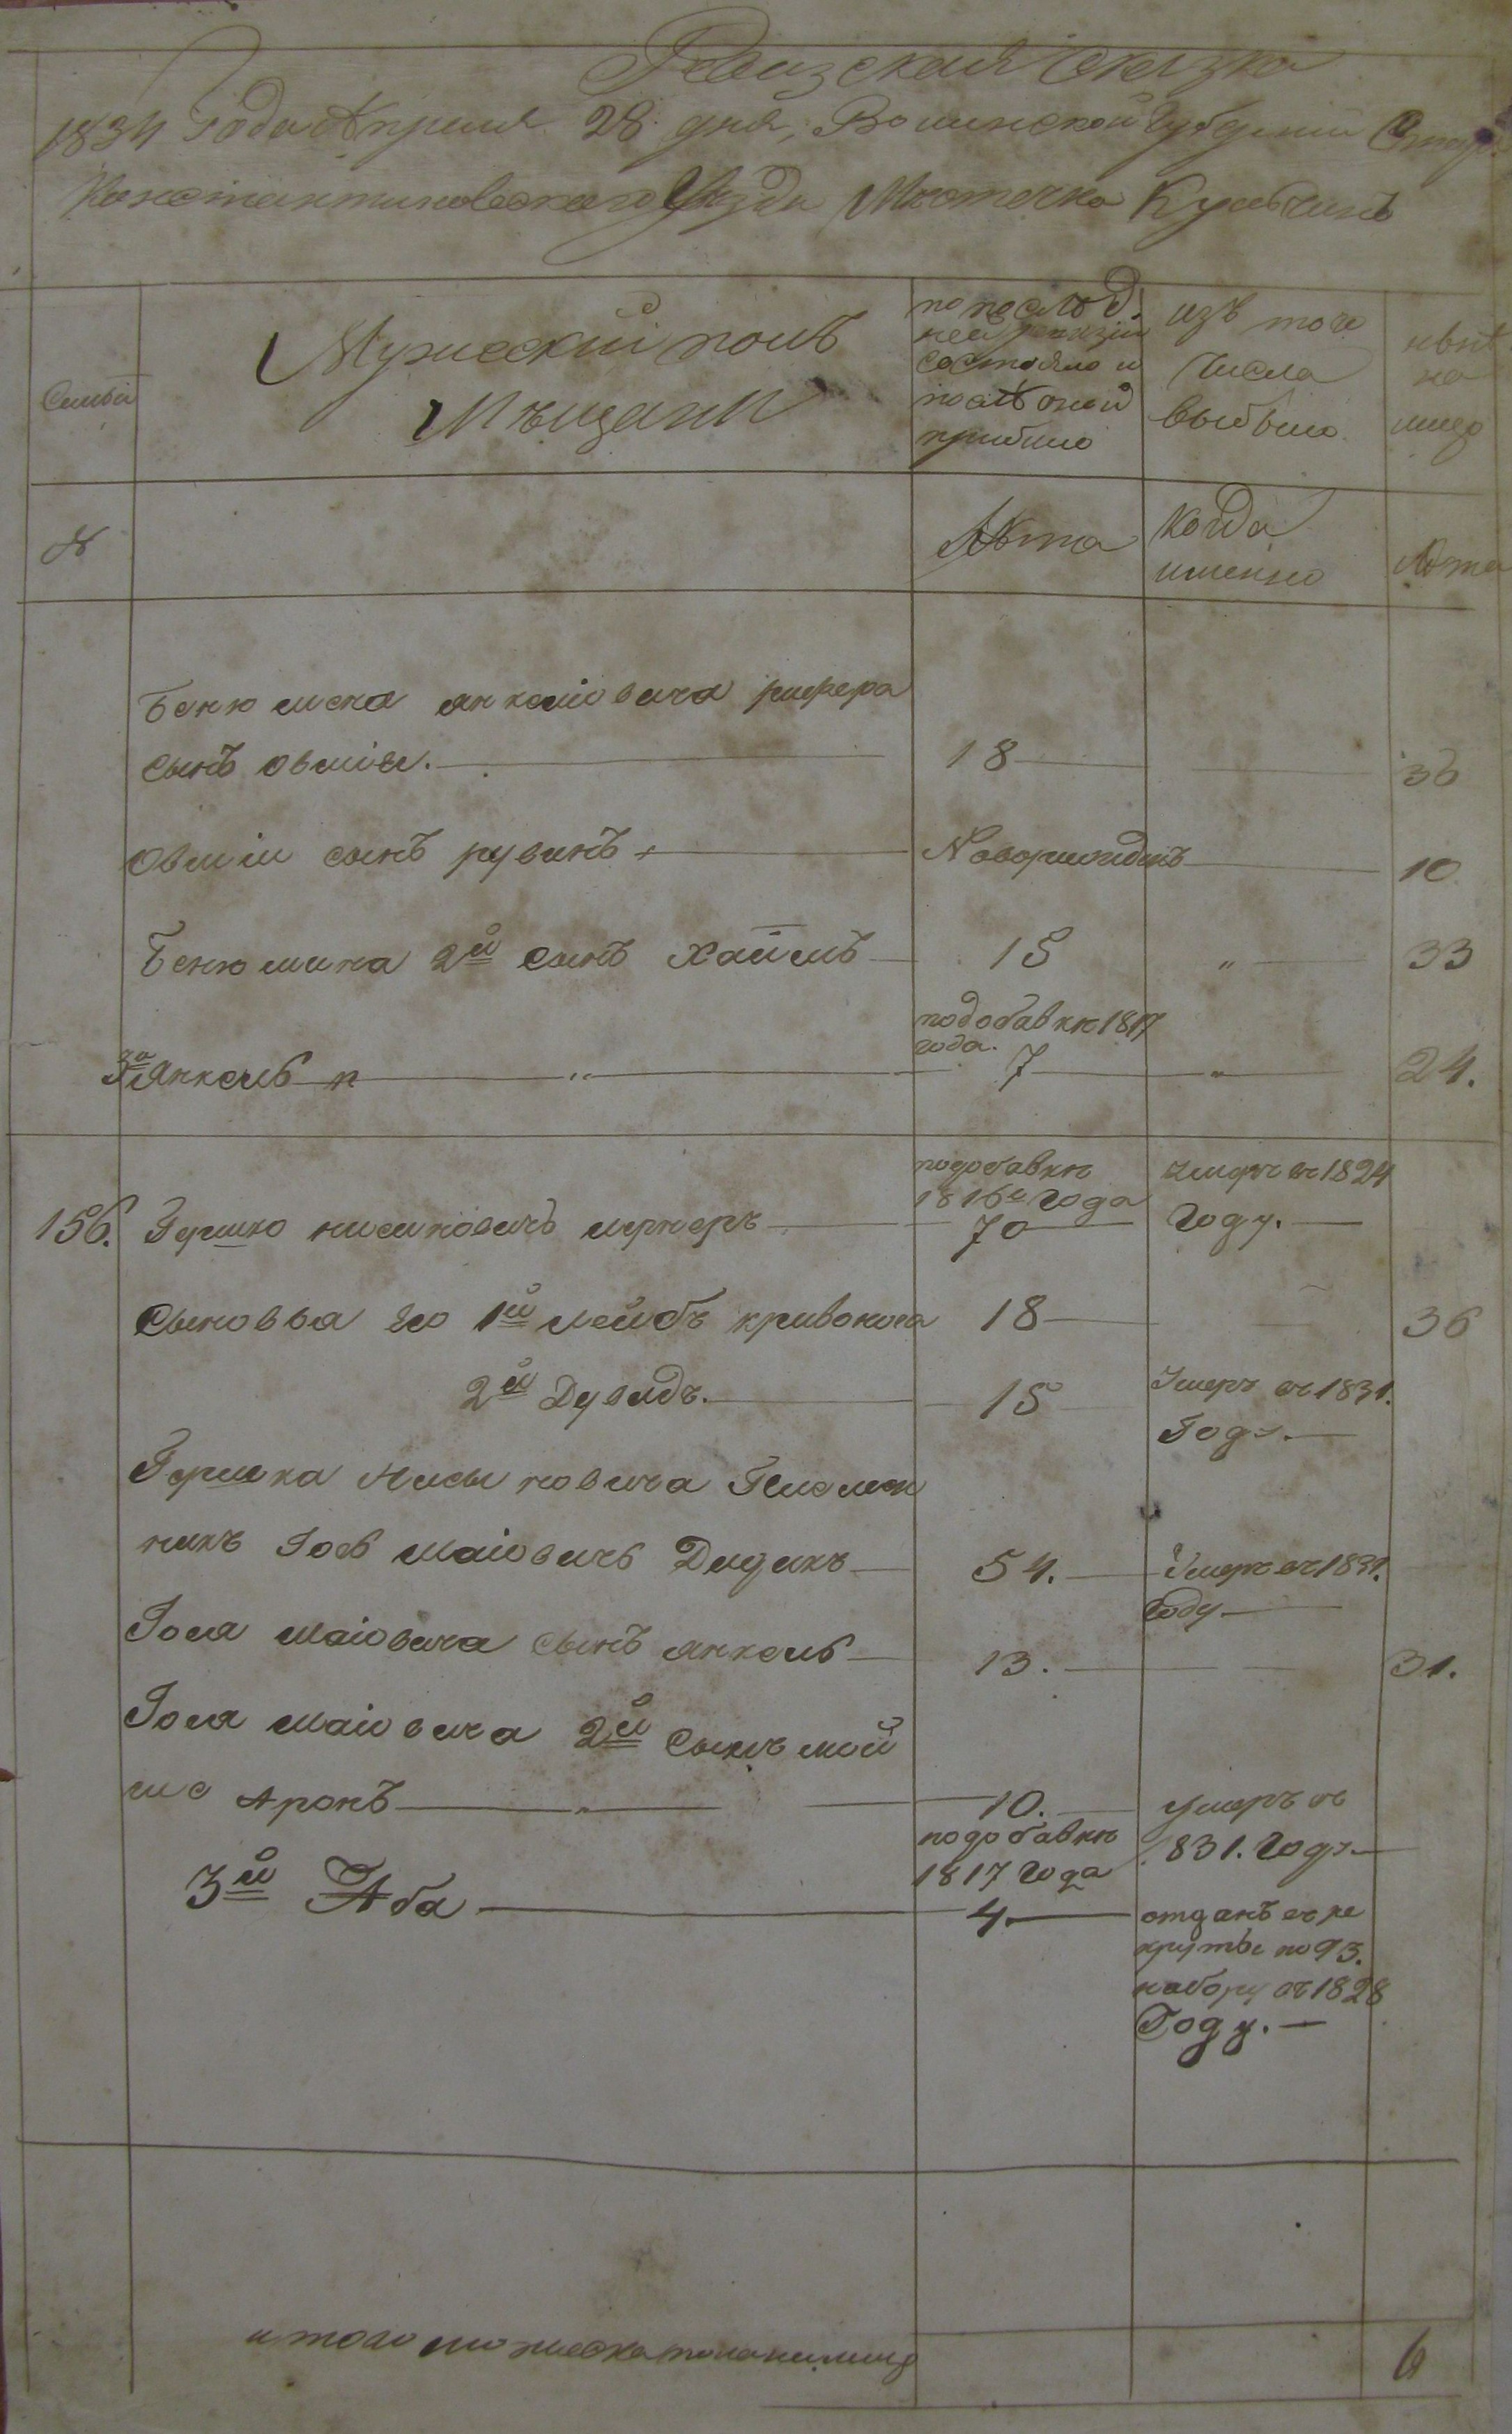 Ревизская Сказка
1834 Года Апреля 28 дня, Волинской Губернии Старо
Константиновского Уезда Мѣстечка Кульчинъ
Семьи
Мужеский полъ
Мѣщани
по послѣд.
ней ревизіи
состояло и
послѣ оной
прибило
изъ того
числа
выбыло
нынѣ
на
лицо
№
Лѣта
когда
именно
Лѣта
Бенюмена янкелiовича
сынъ овшiя. 18 36
Овшiи сынъ рувинъ Новорожденъ 10
Бенюмина 2й сынъ Хаимъ 15 " 33
подобавкѣ 1817
года.
3й Янкель " 7 " 24.
подобавкѣ
1816го Года
умеръ въ 1824
Году.
156. Гершко нисиновичъ лернеръ 70
Сыновья его 1й лейбъ кривоноса 18 36
2й Дувидъ. 15 Умеръ въ 1831.
Году.
Гершка Нисиновича Племян
никъ Iось маiовичъ Дидикъ 54. Умеръ въ 1831.
Году
Iося маiовича сынъ янкель 13. 31.
Iося маiовича 2й сынъ мой
ше Аронъ 10. умеръ въ
831. Году
подобавкѣ
1817 Года
3й Аба 4. отданъ въ ре
круты по 93.
набору въ 1828
Году.
итого мужеска пола налицо 6